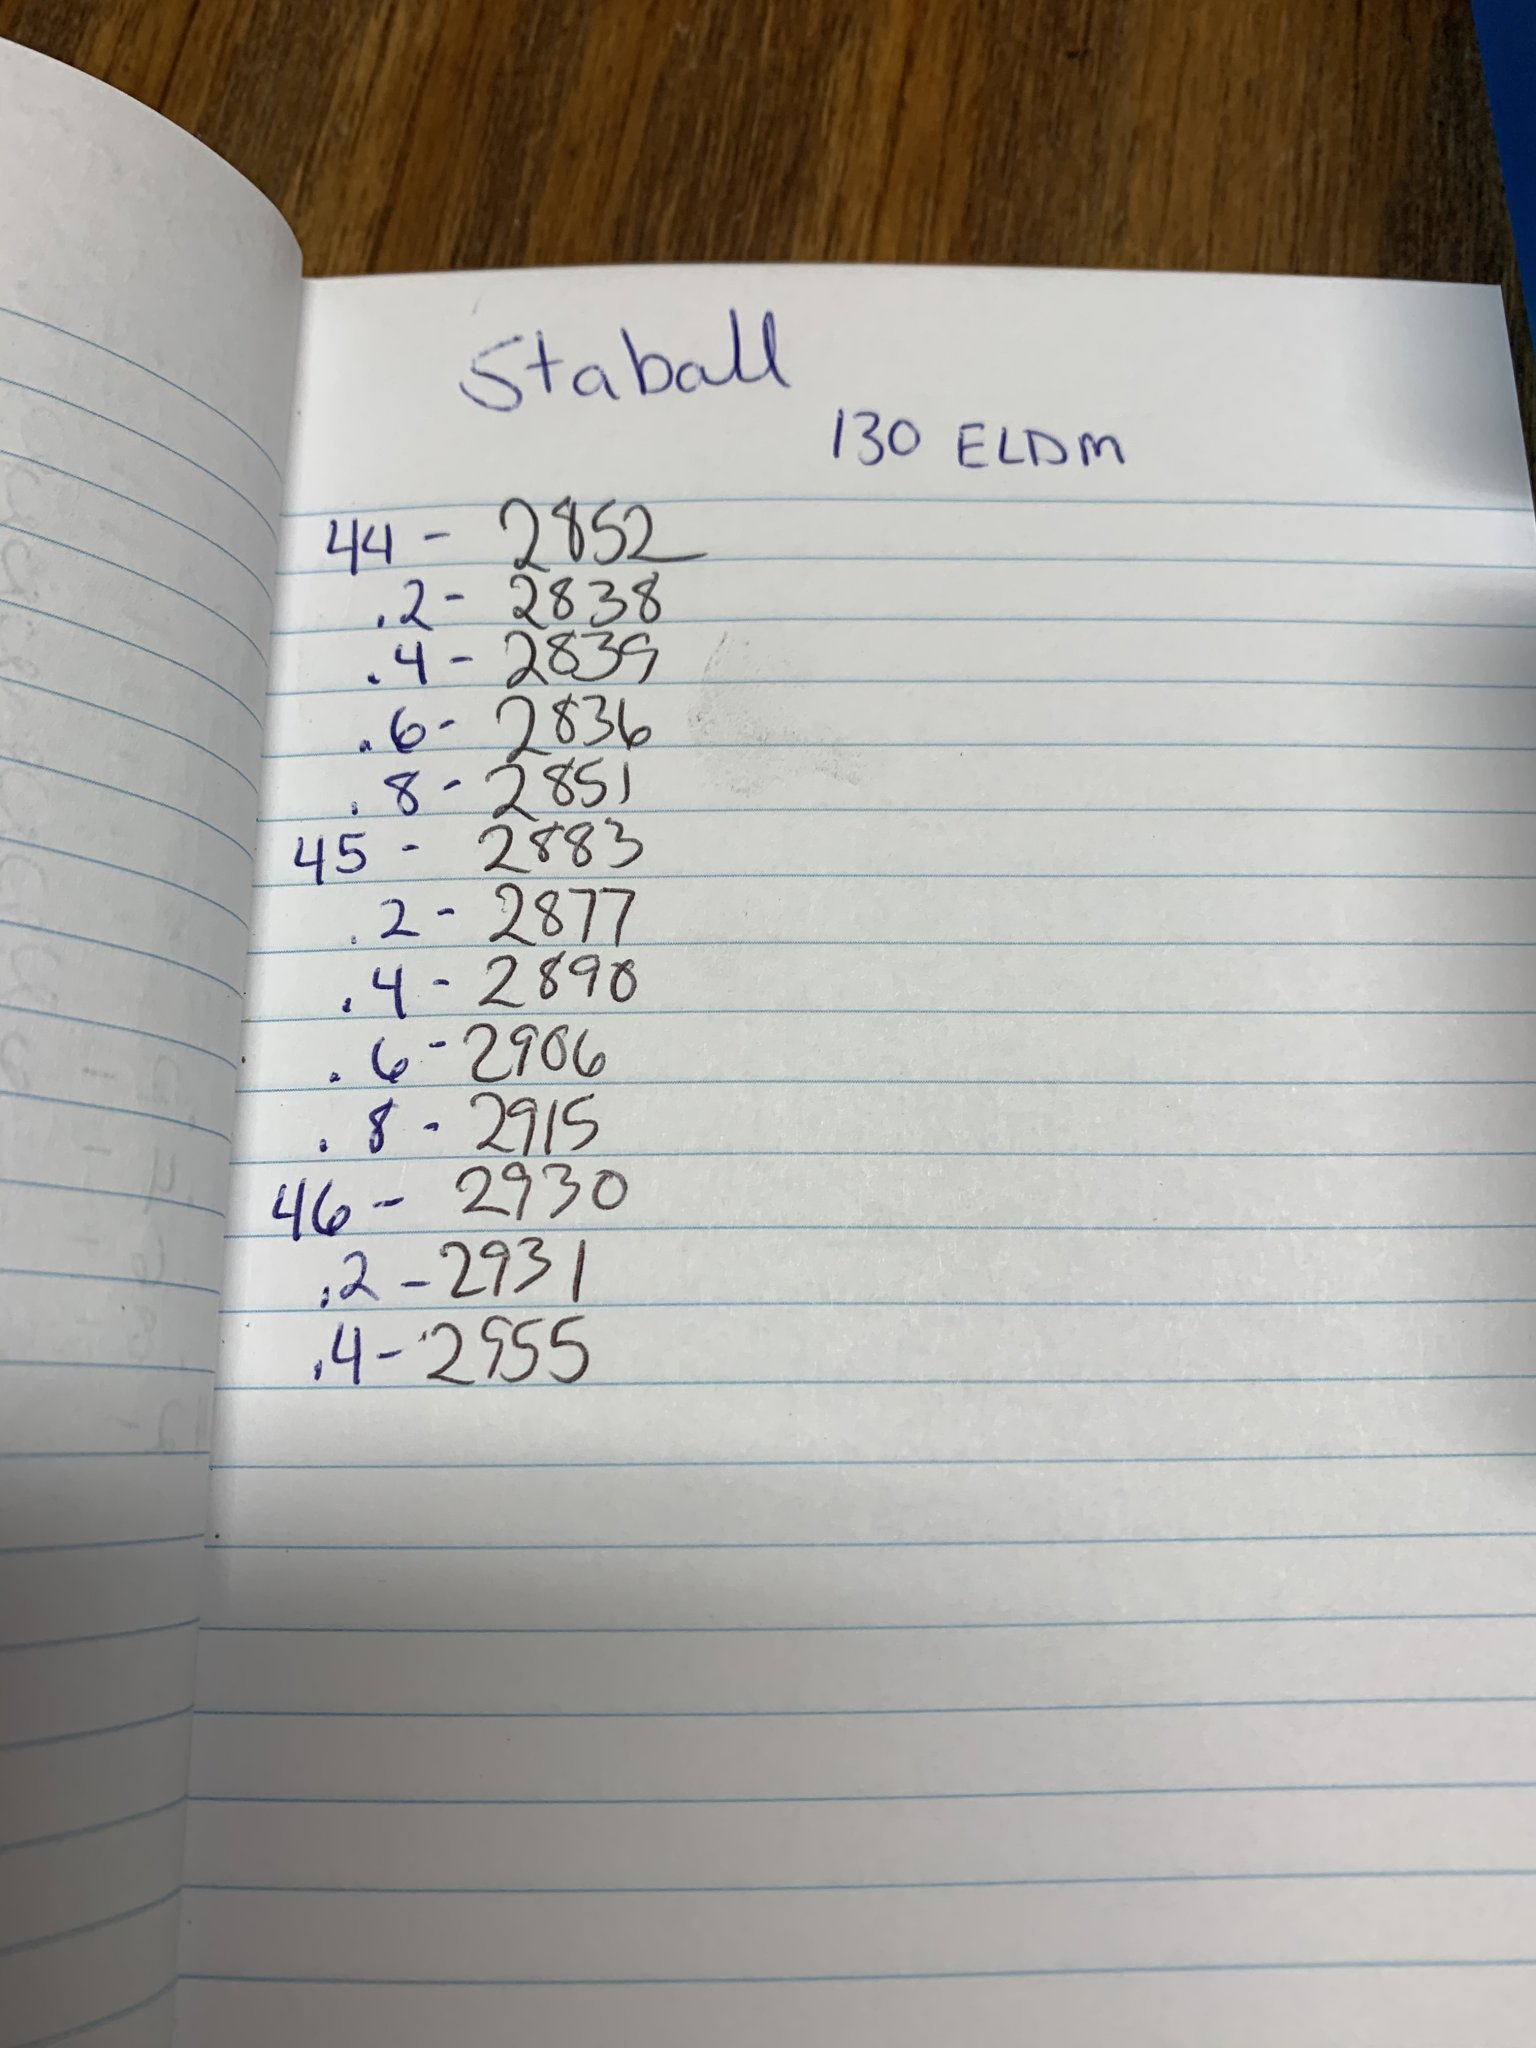 Staball
130 ELDM
44 - 2852
.2 - 2838
.4 - 2839
.6 - 2836
.8 - 2851
45 - 2883
.2 - 2877
.4 - 2890
.6 - 2906
.8 - 2915
46 - 2930
.2 - 2931
.4 - 2955